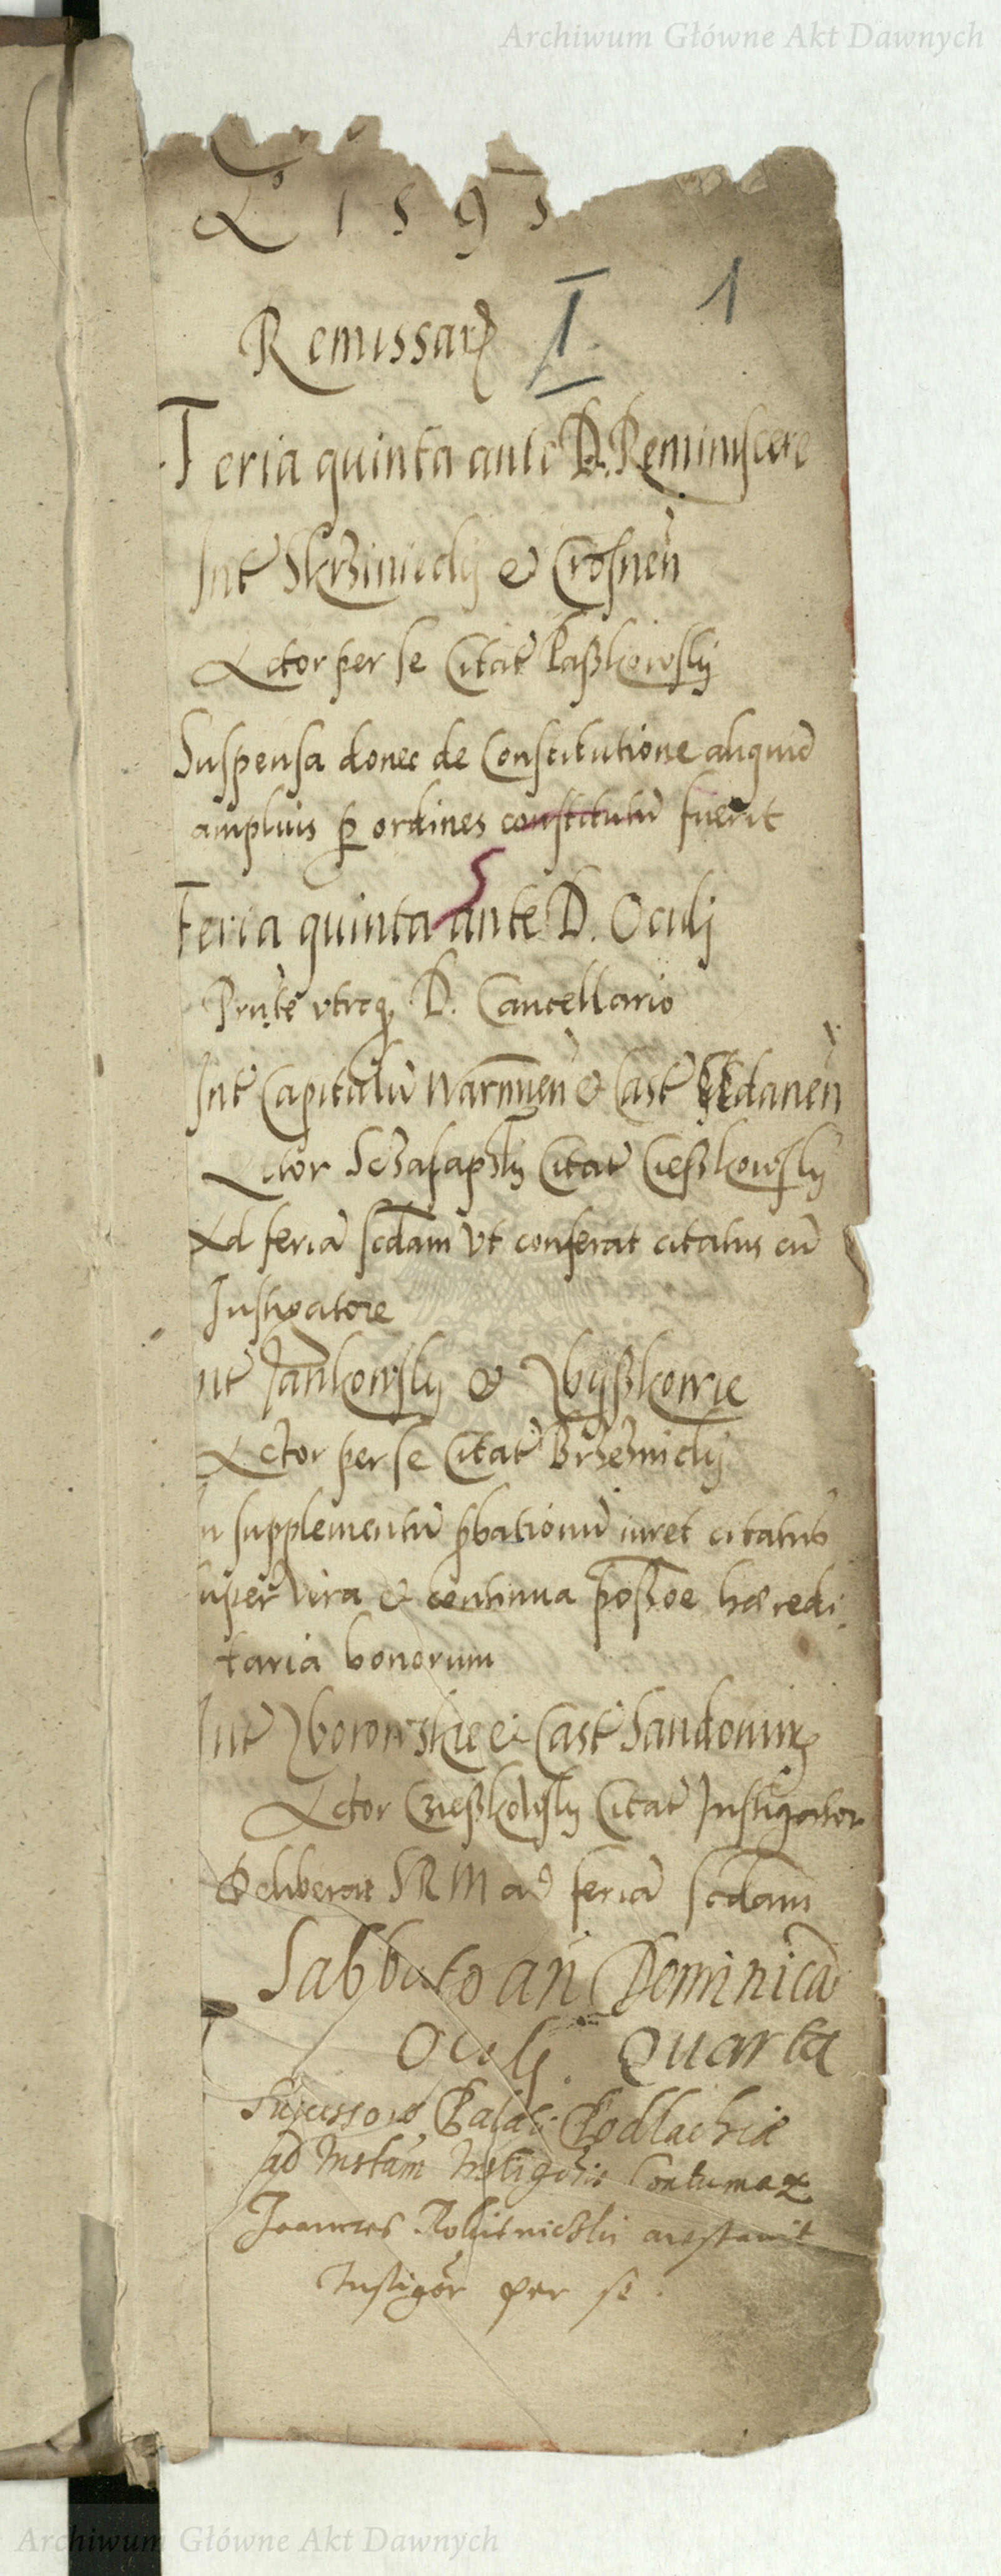 Archiwum Główne Akt Dawnych
Ao 1595
Remissarz
I. 1
Feria quinta ante D. Reminiscere
Int Skrziniecky & Crosnen
Actor per se Citat Paßkowsky
Suspensa donec de Constitutione aliquid
amplius p ordines constitutu fuerit
5
Feria quinta ante D. Oculj
Prnte utroq D. Cancellario
Int Capitulu Warmien & Cast Gedanen
Actor Citat Cießkowsky
Ad feria scdam ut conferat citatus cu
Instigatore
Int Jankowsky & Zbyßkowie
Actor per se Citat Brzeznicky
In supplementu pbationu iuret citatus
super vera & continua poßoe hæredi
taria bonorum
Int Zborowskie & Cast Sandomirz
Actor Czießkowsky Citat Instigator
Deliberat SRM ad feria scdam
Sabbato an Dominica
Oculj Quarta
Successores Palat Podlachiæ
ad Instam Instigoris Contumax
Joannes arestavit
Instigor per se.
Archiwum Główne Akt Dawnych